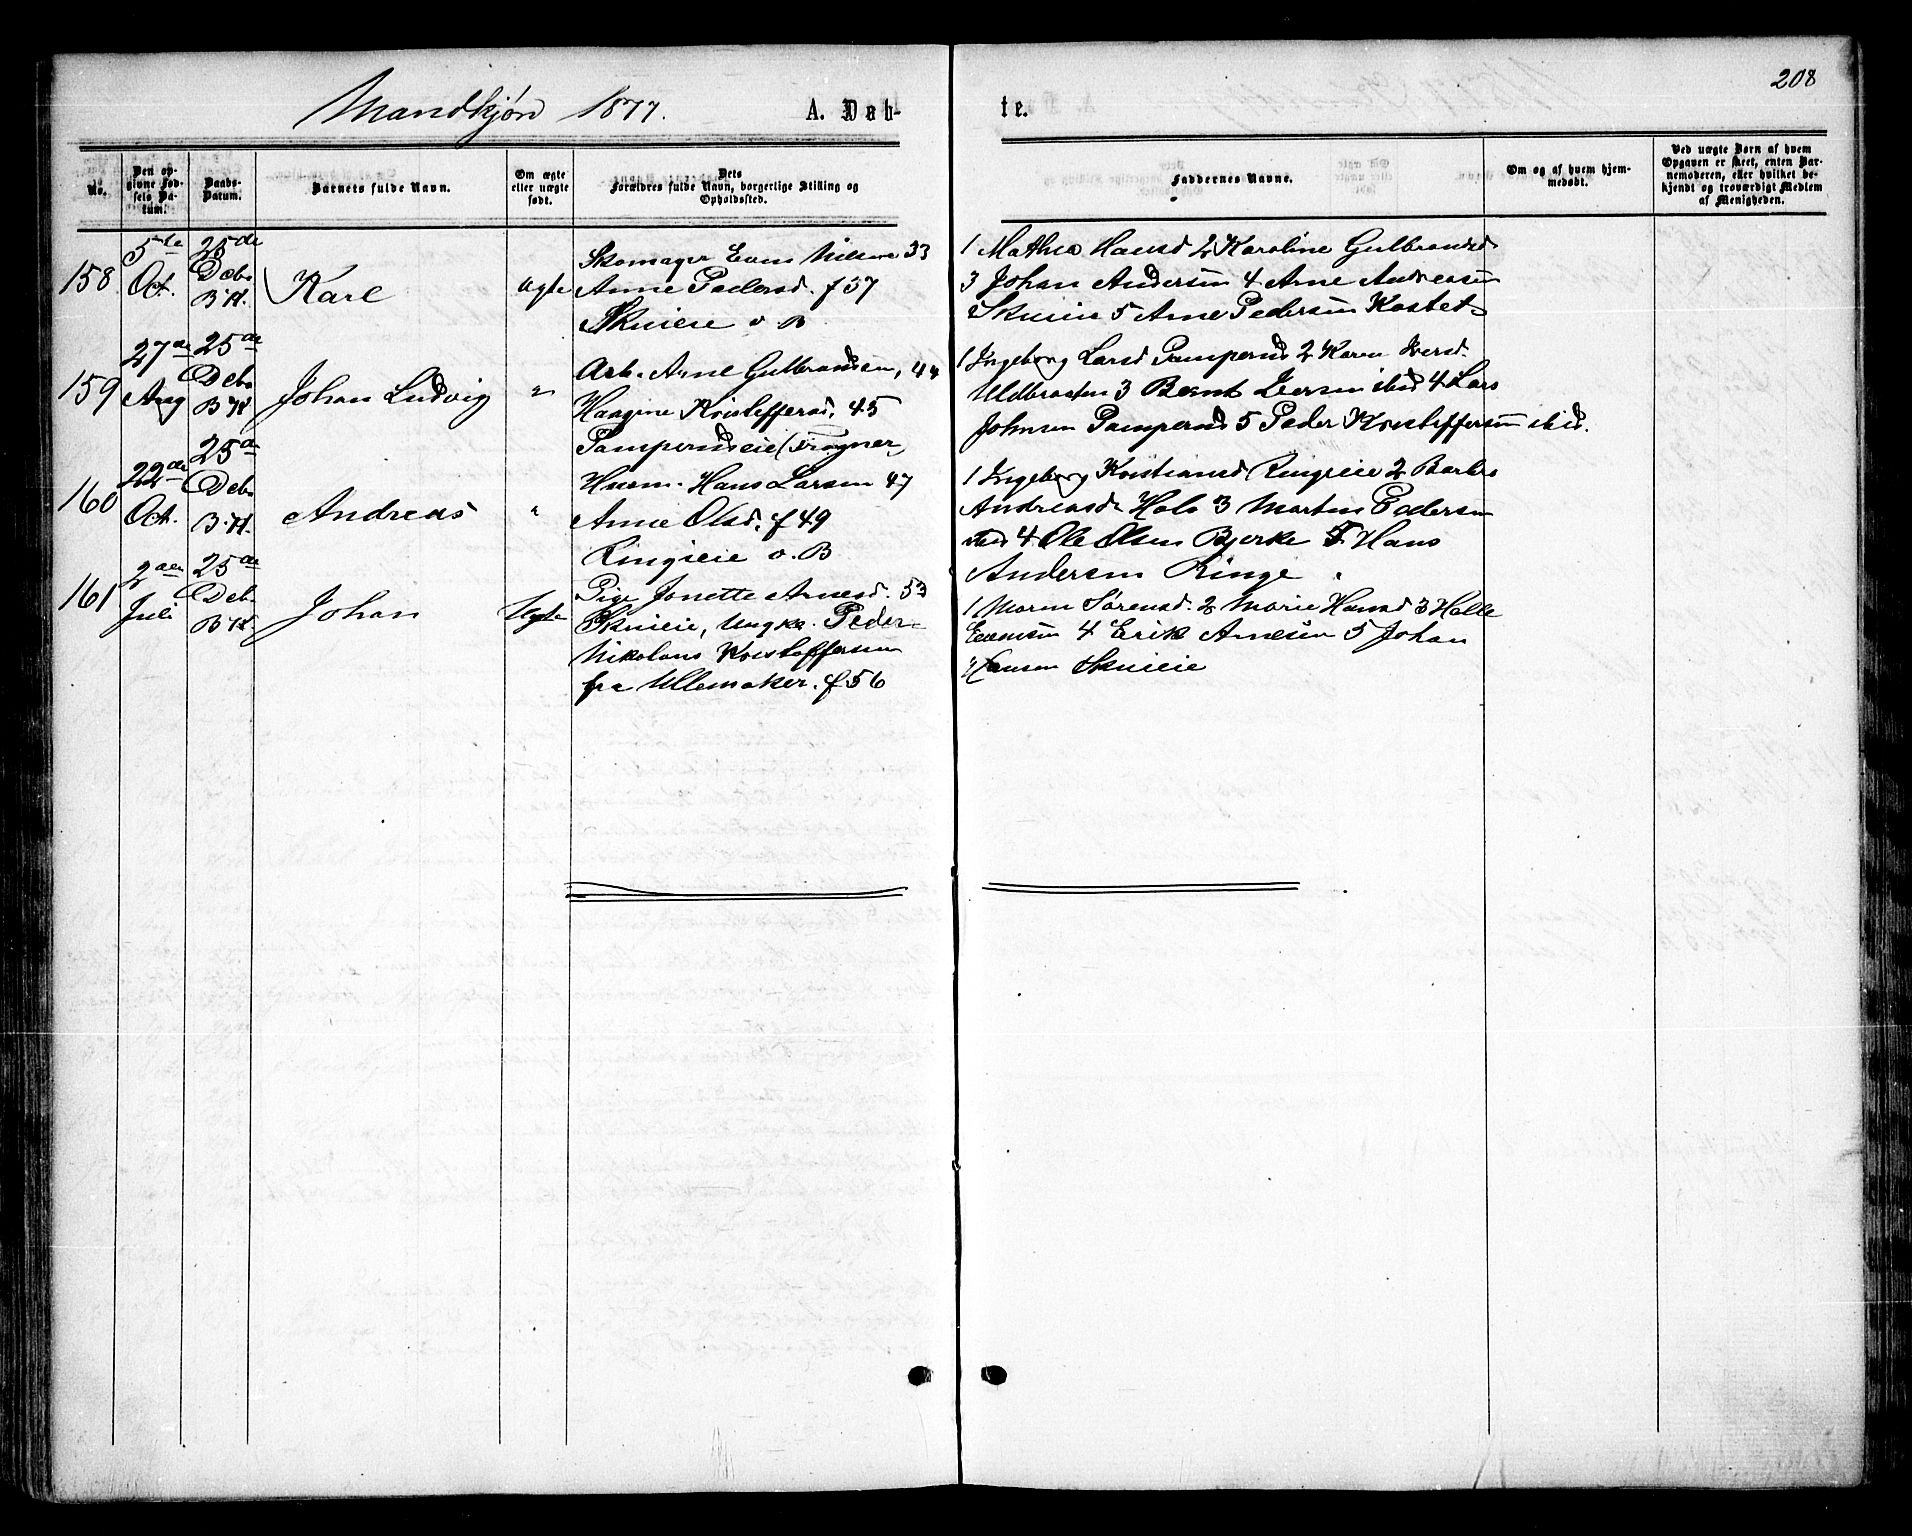 208
Mandkjøn 1877. A. Døb-
te.
No.
Den op-
givne Fød-
sels Da-
tum.
Daabs-
Datum.
Barnets fulde Navn.
Om ægte
eller uægte
født.
Dets
Forældres fulde Navn, borgerlige Stilling og
Opholdssted.
Faddernes Navne.
Om og af hvem hjem-
medøbt.
Ved uægte Børn af hvem
Opgaven er skeet, enten Bar-
nemoderen, eller hvilket be-
kjendt og troværdigt Medlem
af Menigheden.
158
5te
Oct.
25de
Decbr
B.K.
Karl
ægte
Skomager Even Nilsen 33
Anne Pedersd. f 37
Skuieie v. B
1 Mathea Hansd 2 Karoline Gulbrandsd
3 Johan Andersen 4 Arne Andreasen
Skuien 5 Arne Pedersen Kostet
159
27de
Aug
25de
Debr
B K
Johan Ludvig
"
Arb. Arne Gulbrandsen, 44
Haagine Kristoffersd. 45
Tamperudseie (Sogner
1 Ingeborg Larsd Tamperud 2 Karen Iversd.
Uldbraaten 3 Bernt Iversen ibid 4 Lars
Johnsen Tamperud 5 Peder Kristoffersen ibid.
160
22de
Oct.
25de
Debr
B.K.
Andreas
"
Husm. Hans Larsen 47
Anne Olsd. f 49
Ringieie v. B
1 Ingeborg Kristiansd Ringieie 2 Barbro
Andreasd Holo 3 Morten Pedersen
ibid 4 Ole Olsen Bjerke 5 Hans
Andersen Ringe
161
2den
Juli
25de
Deb.
B K.
Johan
Uægte
Pige Jonette Arnesd. 53
Skuieie, Ungk. Peder
Nikolaus Kristoffersen
fra Ullemaker. f. 56
1 Maren Sørensd. 2 Marie Hansd 3 Halle
Evensen 4 Erik Arnesen 5 Johan
Hansen Skuieie